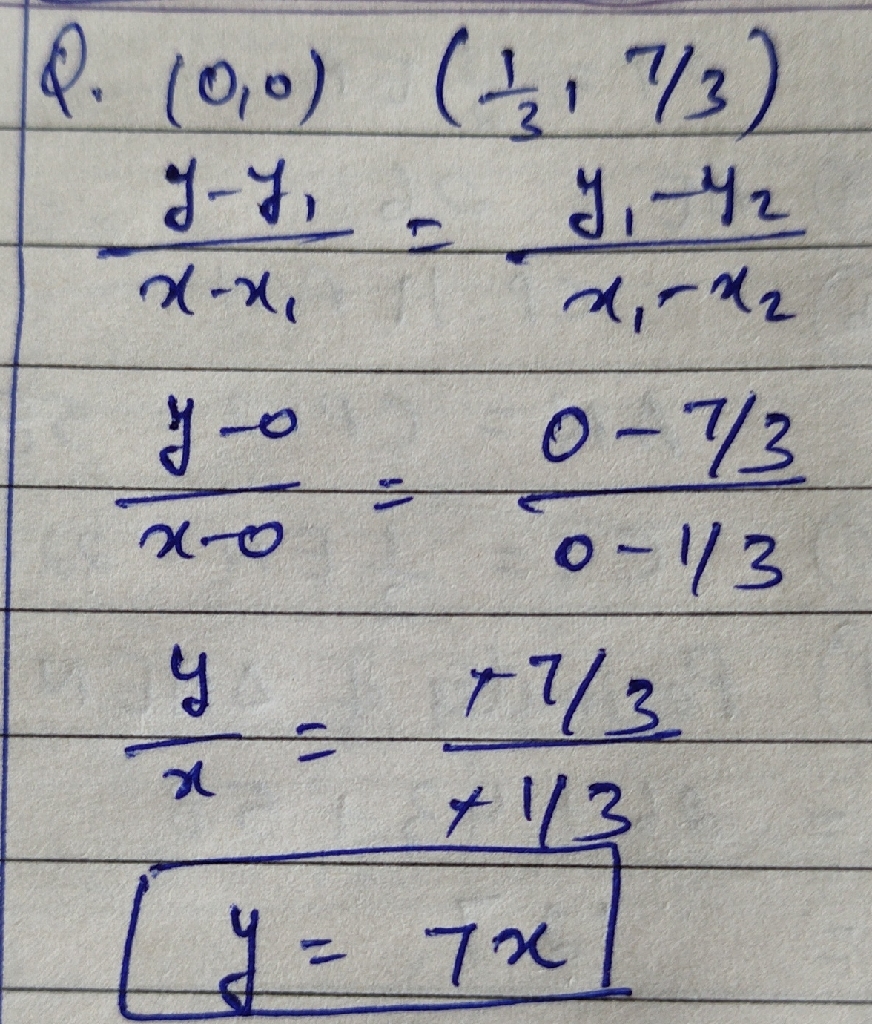 Q. (0,0) (1/3, 7/3)
y-y₁/x-x₁ = y₁-y₂/x₁-x₂
y-0/x-0 = 0-7/3/0-1/3
y/x = +7/3/+1/3
y = 7x